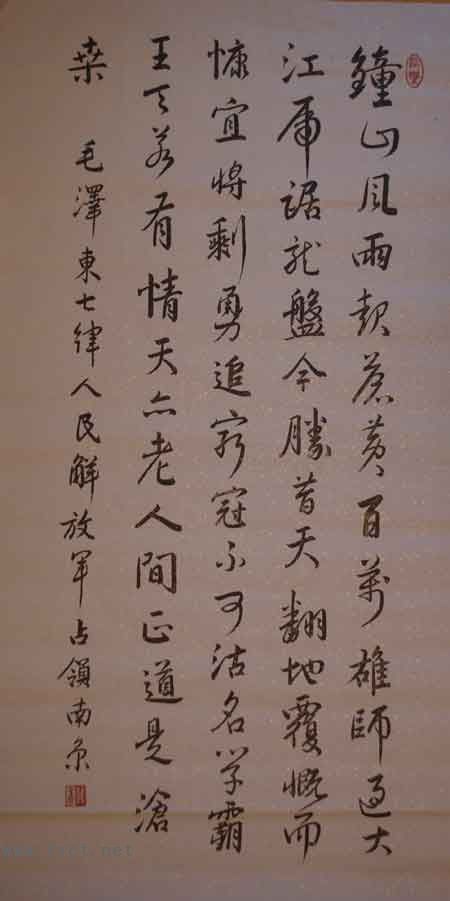 鐘山風雨起蒼黄百萬雄師過大
江虎踞龍盤今勝昔天翻地覆慨而
慷宜將剩勇追窮寇不可沽名学霸
王天若有情天亦老人間正道是滄
桑 毛澤東七律人民解放軍占領南京